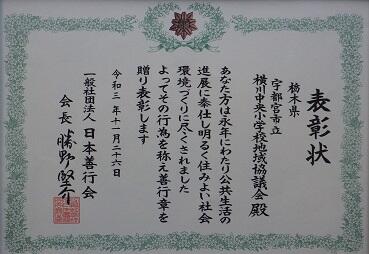 表彰状
栃木県
宇都宮市立
横川中央小学校地域協議会 殿
あなた方は永年にわたり公共生活の
進展に奉仕し明るく住みよい社会
環境づくりに尽くされました
よってその行為を称え善行章を
贈り表彰します
令和三年十一月二十六日
一般社団法人 日本善行会
会長 勝野堅介